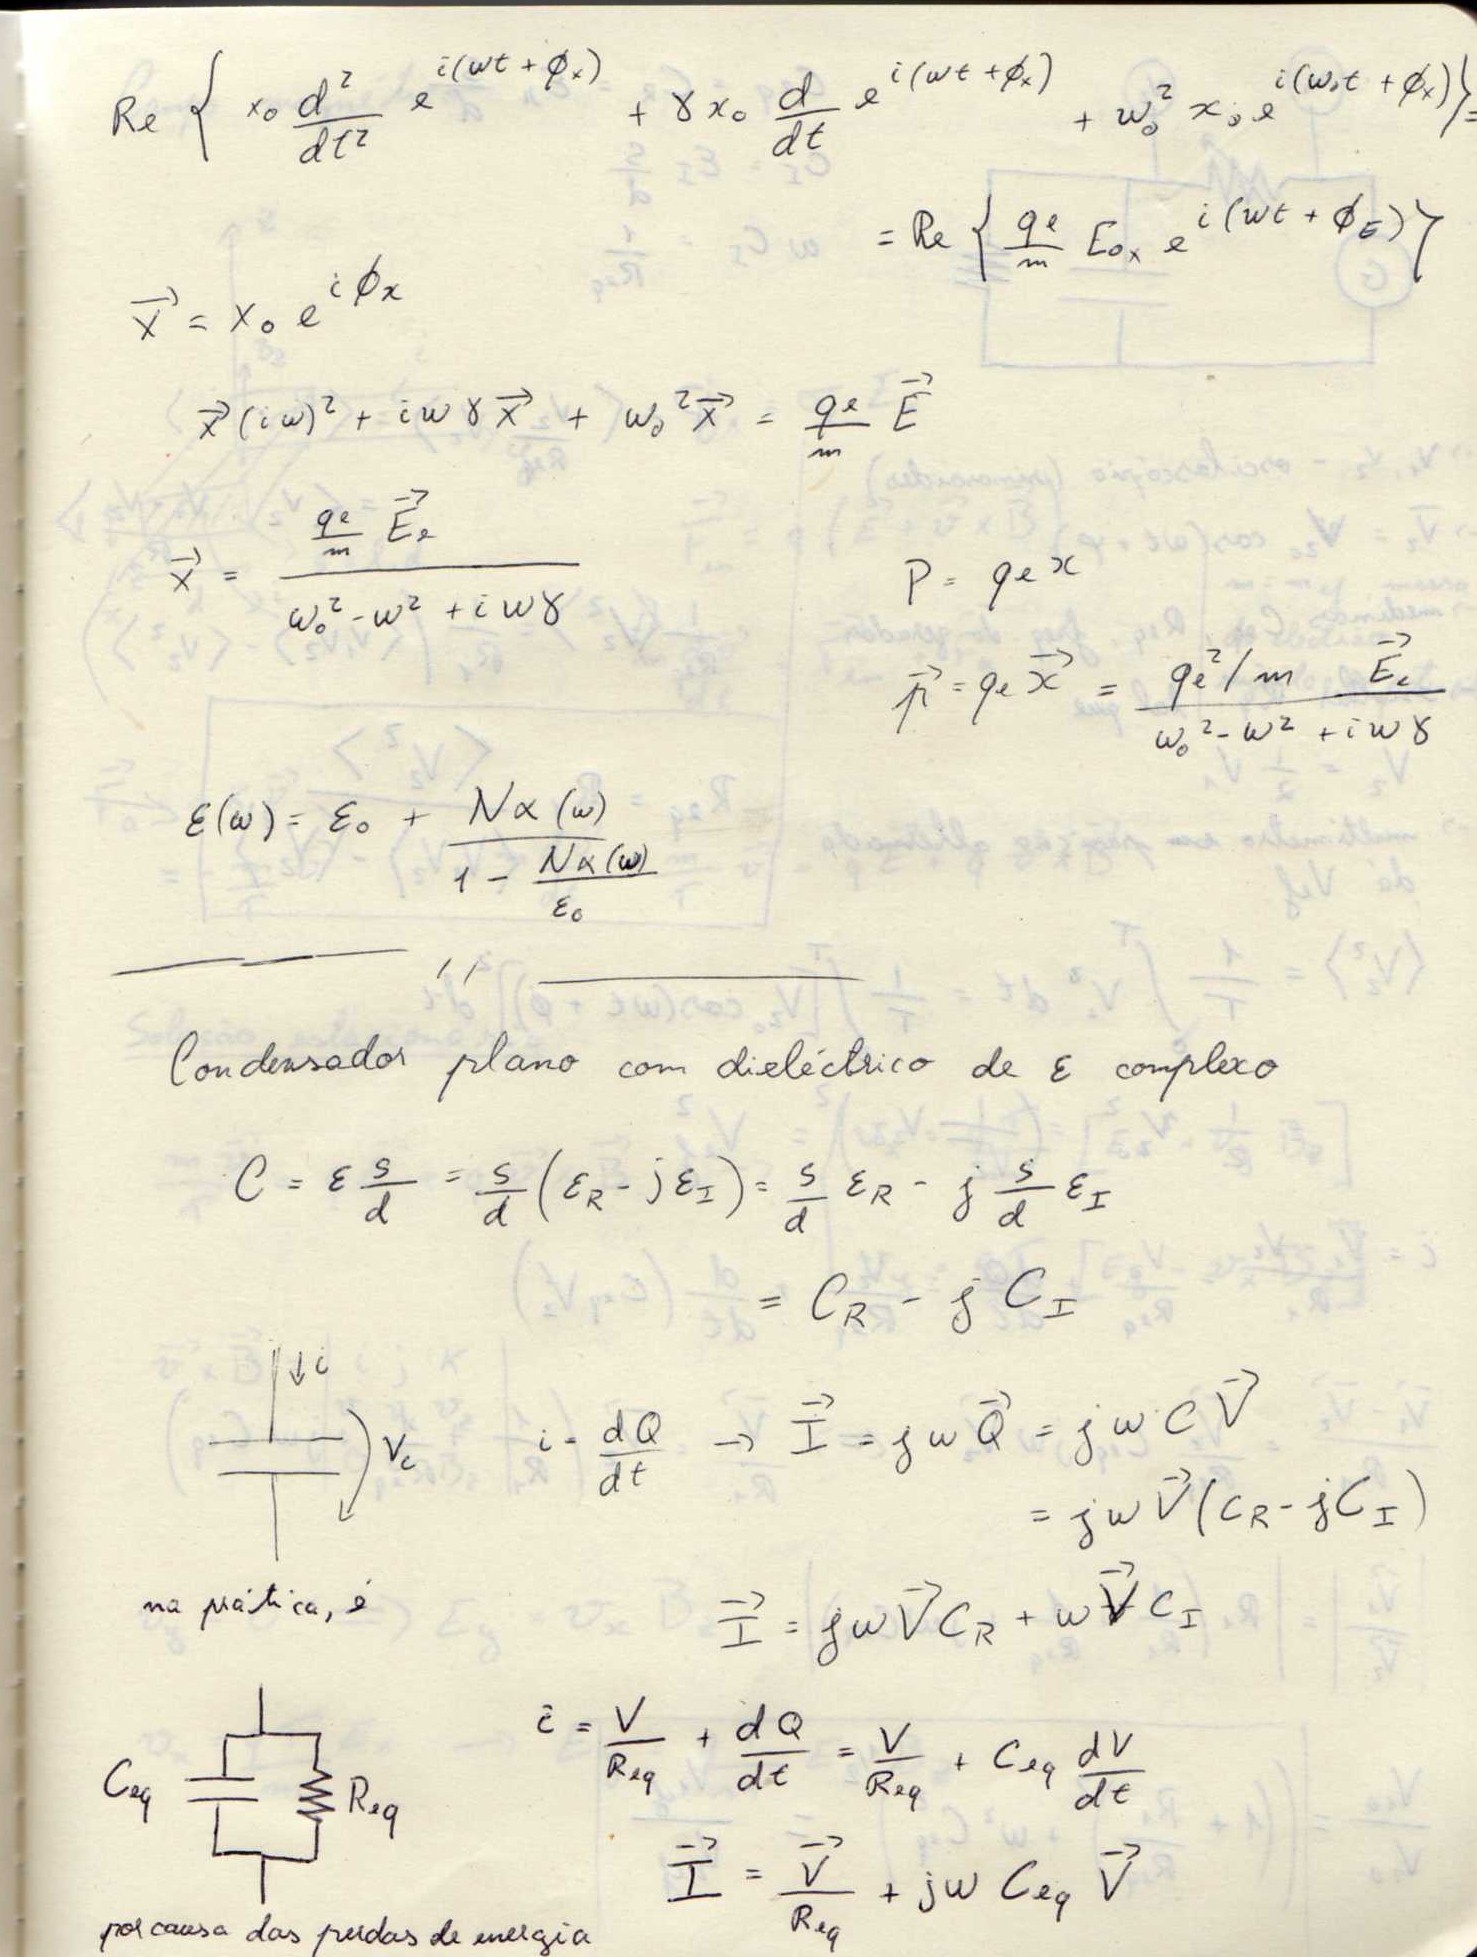 Re { x₀ d²/dt² e^{i(ωt + ϕₓ)} + γ x₀ d/dt e^{i(ωt + ϕₓ)} + ω₀² x₀ e^{i(ω₀t + ϕₓ)} } =
= Re { qe/m E₀ₓ e^{i(ωt + ϕ_E)} }
x⃗ = x₀ e^{iϕₓ}
x⃗ (iω)² + iωγ x⃗ + ω₀² x⃗ = qe/m E⃗
x⃗ = (qe/m E⃗e) / (ω₀² - ω² + iωγ)
P = qe x
p⃗ = qe x⃗ = (qe²/m E⃗e) / (ω₀² - ω² + iωγ)
ε(ω) = ε₀ + Nα(ω) / (1 - Nα(ω)/ε₀)
Condensador plano com dieléctrico de ε complexo
C = ε S/d = S/d (ε_R - jε_I) = S/d ε_R - j S/d ε_I
= C_R - j C_I
↓ i
V_c
i = dQ/dt → I⃗ = jωQ⃗ = jωCV⃗
= jωV⃗ (C_R - jC_I)
na prática, é
I⃗ = jωV⃗C_R + ωV⃗C_I
i = V/Req + dQ/dt = V/Req + Ceq dV/dt
Ceq Req
I⃗ = V⃗/Req + jωCeq V⃗
por causa das perdas de energia